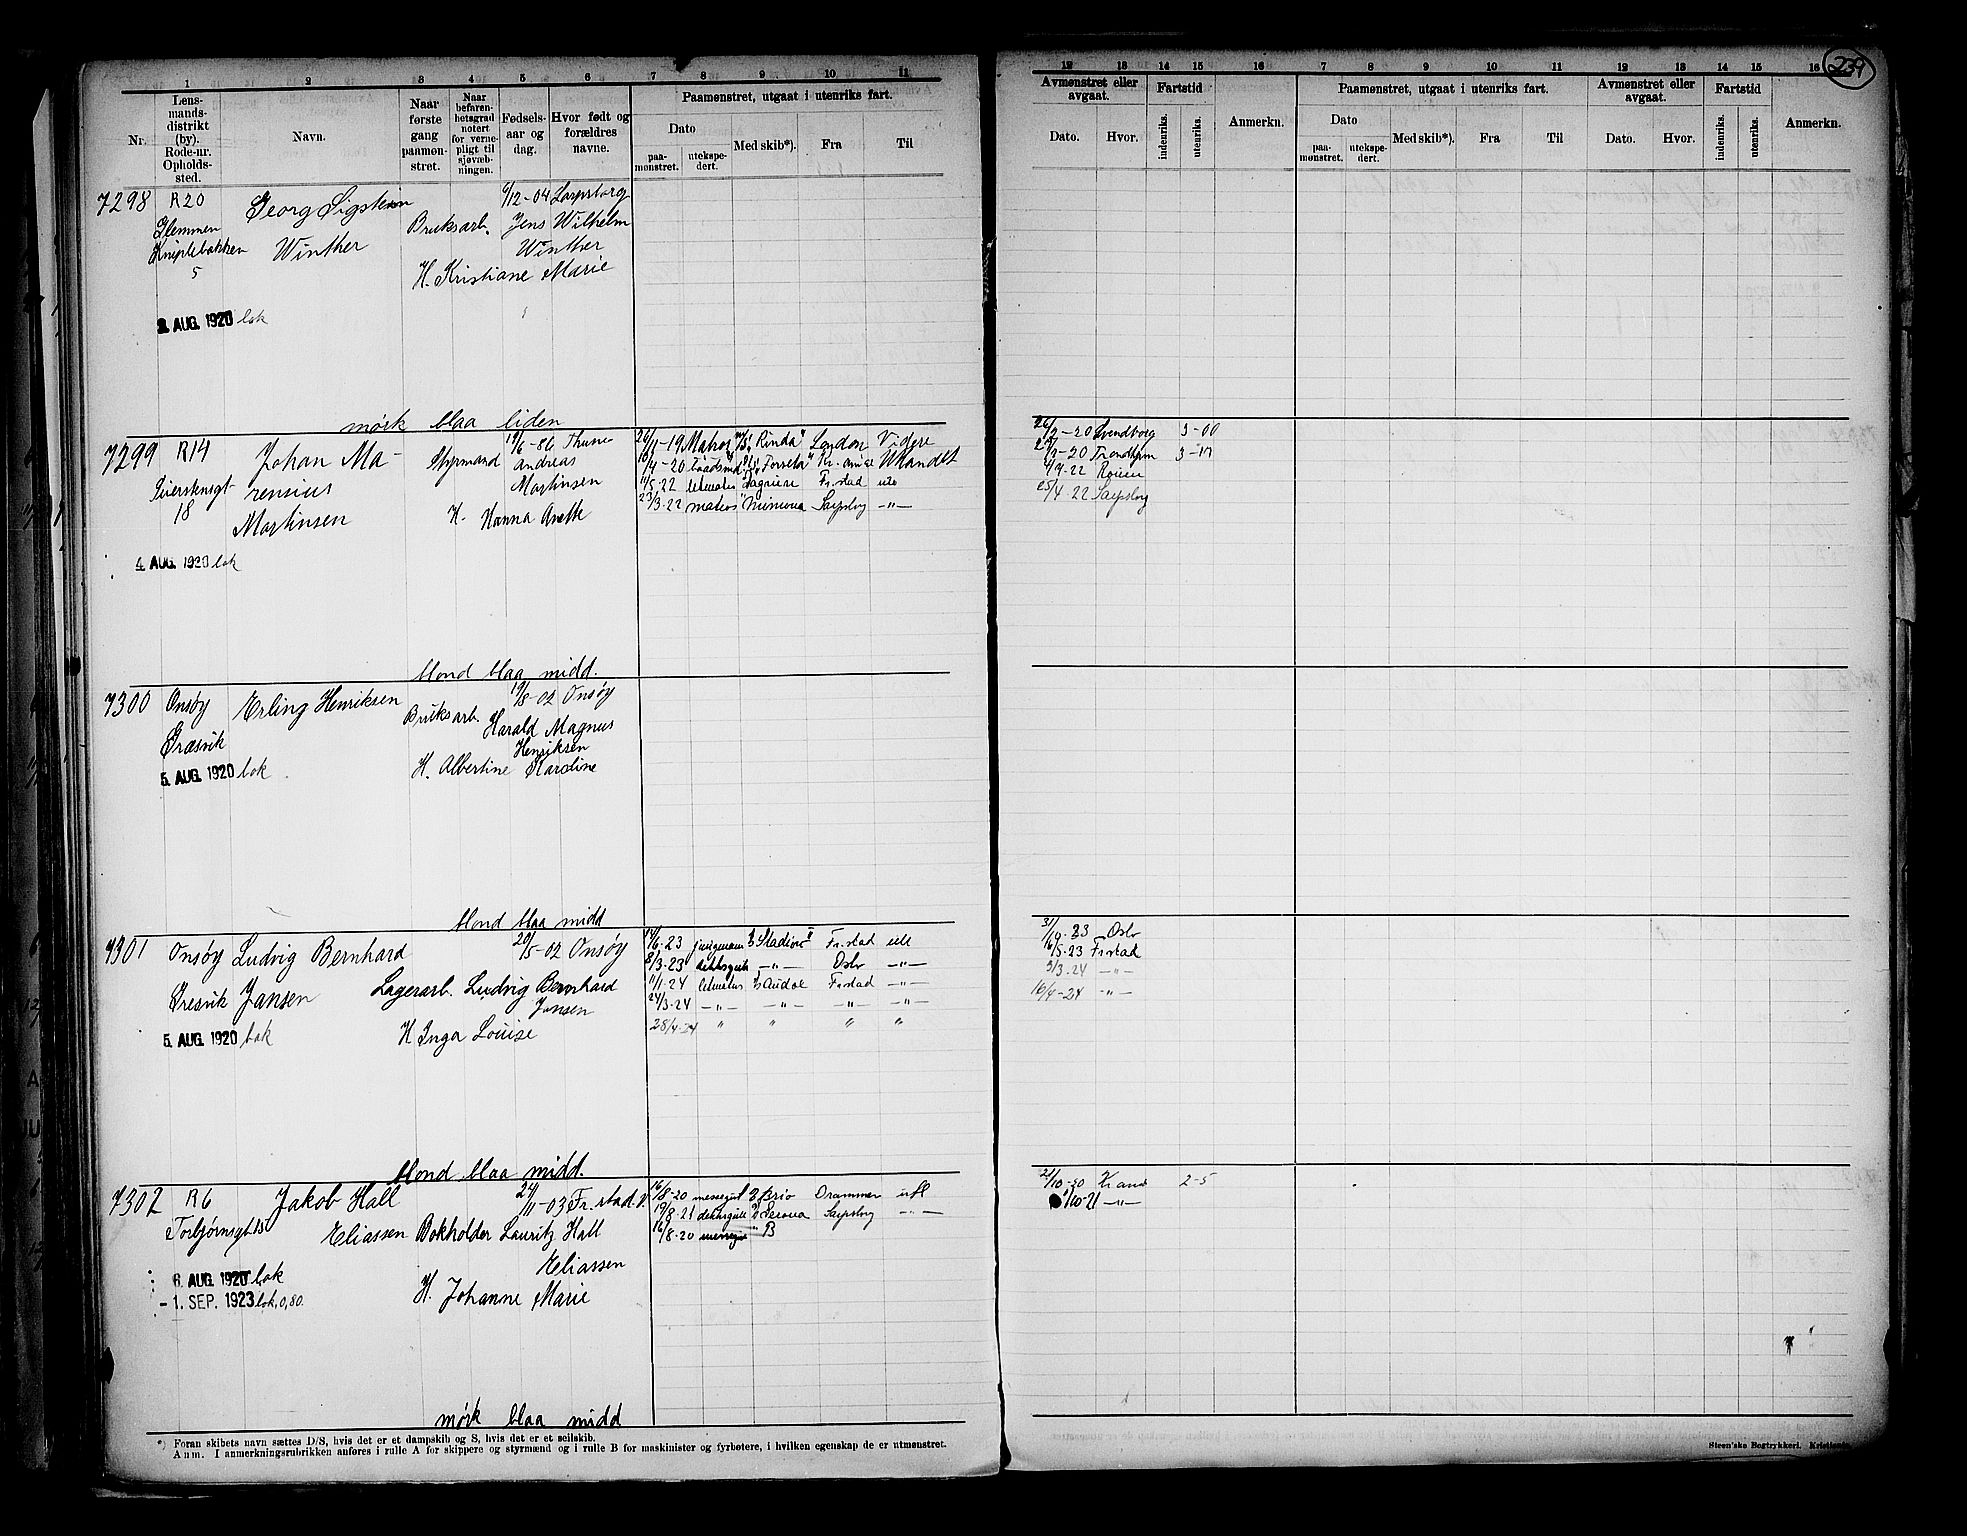 239
1 2 3 4 5 6 7 8 9 10 11
12 13 14 15 16 7 8 9 10 11 12 13 14 15 16
Nr.
Lens-
mands-
distrikt
(by).
Rode-nr.
Opholds-
sted.
Navn.
Naar
første
gang
paamøn-
stret.
Naar
befaren-
hetsgrad
notert
for verne-
pligt til
sjøvæb-
ningen.
Fødsels-
aar og
dag.
Hvor født og
forældres
navne.
Paamønstret, utgaat i utenriks fart.
Dato
paa-
mønstret.
utekspe-
dert.
Med skib*).
Fra
Til
Avmønstret eller
avgaat.
Dato.
Hvor.
Fartstid
indenriks.
utenriks.
Anmerkn.
Paamønstret, utgaat i utenriks fart.
Dato
paa-
mønstret.
utekspe-
dert.
Med skib*).
Fra
Til
Avmønstret eller
avgaat.
Dato.
Hvor.
Fartstid
indenriks.
utenriks.
Anmerkn.
7298 R20 Georg Sigstein 6/12-04 Sarpsborg
Glemmen Bruksarb. Jens Wilhelm
Kniplebakken Winther Winther
5 H. Kristiane Marie
2. AUG. 1920 lok
mørk blaa liden
7299 R14 Johan Ma- Styrmand 19/6-86 Thune
rensius Andreas
18 Martinsen
Martinsen H. Hanna Anette
26/11-19 Matros "Rinda" London Videre
10/4-20 "Forseta" Kr.ania Utlandet
11/5.22 letmatr Fr.stad ute
23/3.22 matros Sarpsbg -"-
26/2-20 Svendborg 3-00
27/7-20 Trondhjem 3-17
4/9-22 Rouen
25/4.22 Sarpsbg
4. AUG. 1920 lok
blond blaa midd.
7300 Onsøy Erling Henriksen 19/8-02 Onsøy
Bruksarb. Harald Magnus
Græsvik Henriksen
5. AUG. 1920 lok H. Albertine Karoline
blond blaa midd
7301 Onsøy Ludvig Bernhard 20/5-02 Onsøy
Gresvik Jansen Lagerarb. Ludvig Bernhard
Jansen
5. AUG. 1920 lok H Inga Louise
14/6-23 jungmann "Stadion" Fr.stad utl
8/3-23 dekksgut -"- Oslo -"-
11/1-24 letmatr Audoe Fr.stad -"-
24/3-24 -"- -"- -"- -"-
28/4-24 " " " "
31/10-23 Oslo
16/5-23 Fr.stad
3/3-24 -"-
16/4-24 -"-
blond blaa midd.
7302 R6 Jakob Hall 24/11-03 Fr.stad. V.
Eliassen Bokholder Lauritz Hall
Eliassen
6. AUG. 1920 lok
- 1. SEP. 1923 lok, 0,80. H. Johanne Marie
16/8-20 messegut Brio Drammen utl
19/8-21 deksgut Sarpsbg -"-
16/8-20 messegut B
21/10-20 Kr.ans 2-5
1/10-21 -"-
mørk blaa midd
*) Foran skibets navn sættes D/S, hvis det er et dampskib og S, hvis det er et seilskib.
Anm. I anmerkningsrubrikken anføres i rulle A for skippere og styrmænd og i rulle B for maskinister og fyrbøtere, i hvilken egenskap de er utmønstret.
Steen'ske Bogtrykkeri.